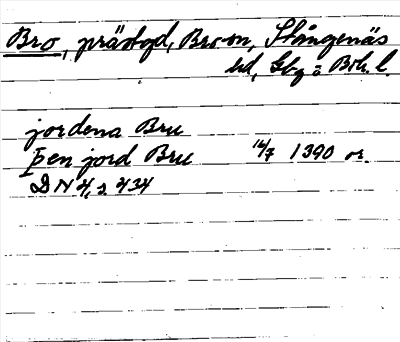 Bro, prästgd, Bro sn, Stångenäs
hd, Gbg o Boh. l.
jordena Bru
Þen jord Bru 16/7 1390 or.
DN 4, s. 434